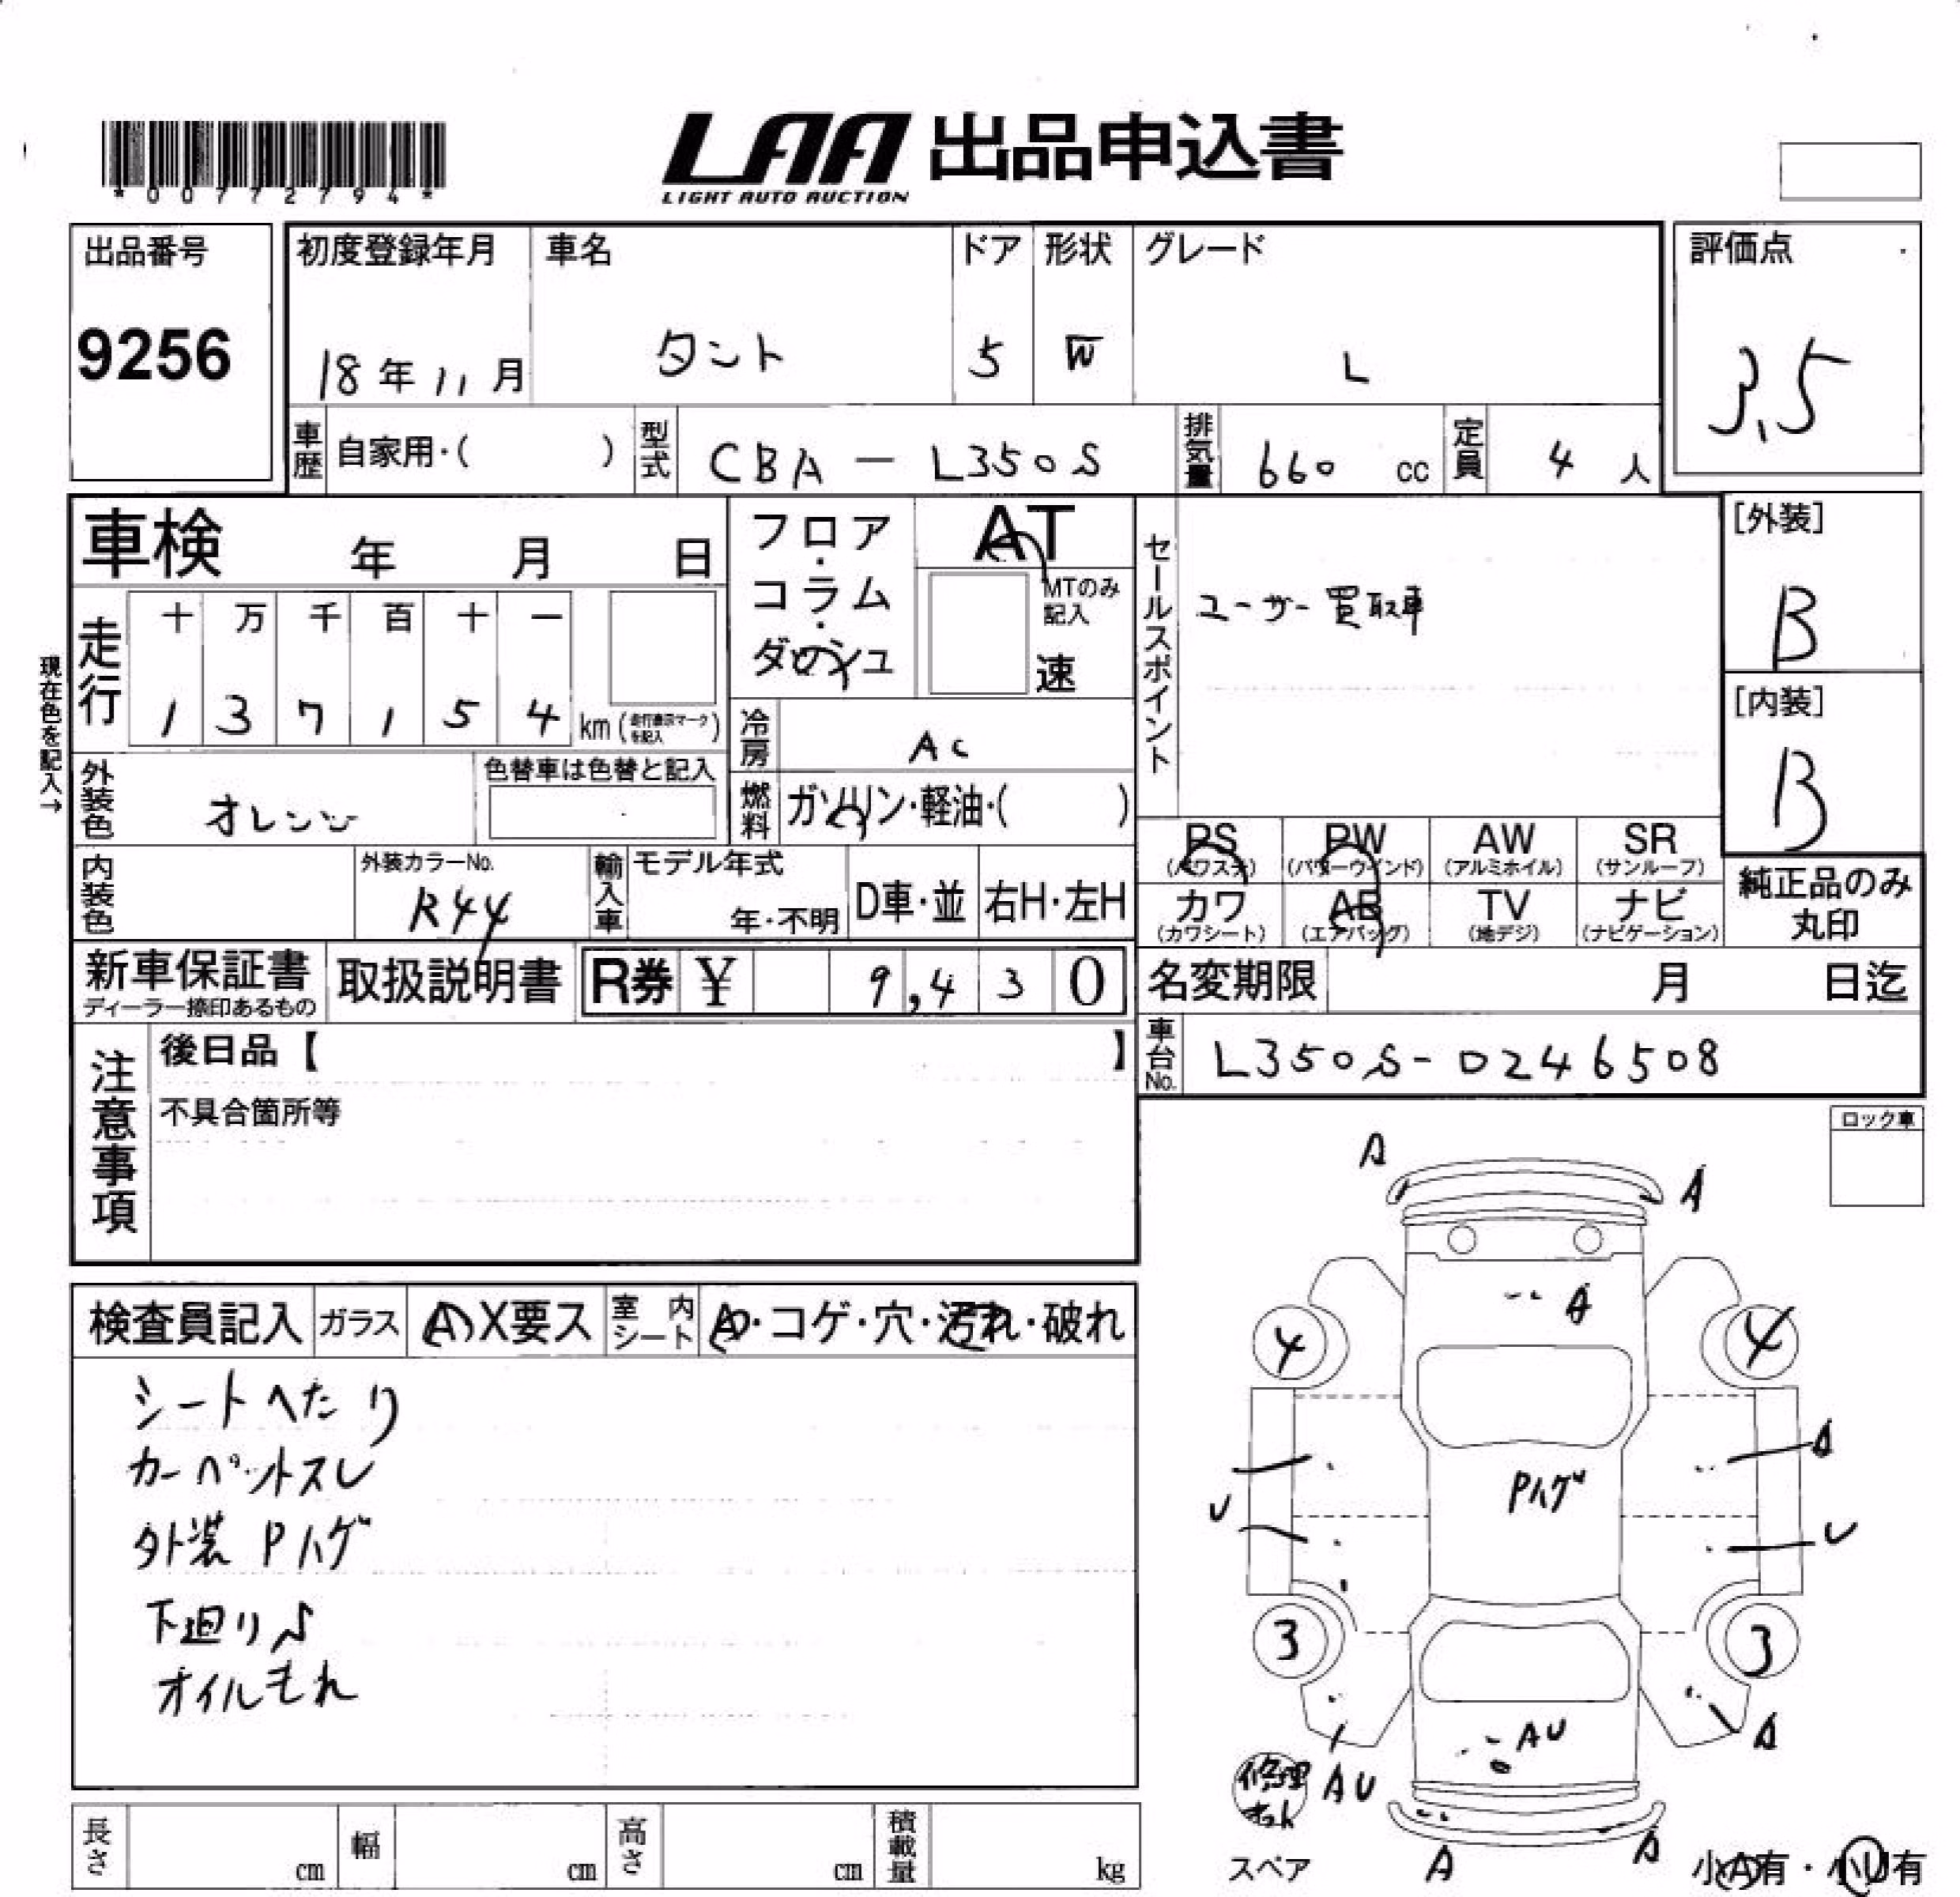 *00772794*
LAA 出品申込書
LIGHT AUTO AUCTION
出品番号
9256
初度登録年月
18年11月
車名
タント
ドア
5
形状
W
グレード
L
評価点
3.5
車歴
自家用・( )
型式
CBA-L350S
排気量
660 cc
定員
4 人
車検 年 月 日
フロア・コラム・ダッシュ
AT
MTのみ記入
速
セールスポイント
ユーザー買取車
[外装]
B
[内装]
B
現在色を記入→
走行
十 万 千 百 十 一
1 3 7 1 5 4 km (走行表示マークを記入)
冷房
AC
外装色
オレンジ
色替車は色替と記入
燃料
ガソリン・軽油・( )
内装色
外装カラーNo.
R44
輸入車
モデル年式
年・不明
D車・並
右H・左H
PS
(パワステ)
PW
(パワーウインド)
AW
(アルミホイル)
SR
(サンルーフ)
カワ
(カワシート)
AB
(エアバッグ)
TV
(地デジ)
ナビ
(ナビゲーション)
純正品のみ
丸印
新車保証書
ディーラー捺印あるもの
取扱説明書
R券 ¥ 9,430
名変期限 月 日迄
車台No.
L350S-0246508
注意事項
後日品【 】
不具合箇所等
ロック車
検査員記入
ガラス
A X要ス
室内シート
A・コゲ・穴・汚れ・破れ
シートへたり
カーペットスレ
外装Pハゲ
下廻りS
オイルモれ
A
A
A
4
4
A
U
Pハゲ
U
3
3
AU
A
AU
A
A
修理
スペア
小A有・小U有
長さ cm
幅 cm
高さ cm
積載量 kg